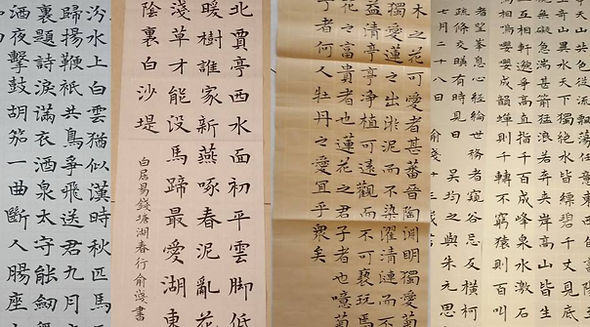 天山共色從流飄蕩任意東
上奇山異水天下獨絕水皆縹碧千丈見底
無礙急湍甚箭猛浪若奔夾岸高山皆生
上互相軒邈爭高直指千百成峰泉水激石
相鳴嚶嚶成韻蟬則千轉不窮猿則百
者望峯息心經綸世務者窺谷忘反橫柯
疏條交映有時見日 吴均之與朱元思
七月二十八日
木之花可愛者甚蕃晉陶淵明獨愛菊
獨愛蓮之出淤泥而不染濯清漣而
益清亭亭淨植可遠觀而不可褻玩焉
花之富貴者也蓮花之君子者也噫菊
者何人牡丹之愛宜乎衆矣
北賈亭西水面初平雲脚低
暖樹誰家新燕啄春泥亂花
淺草才能没馬蹄最愛湖東
陰裏白沙堤
白居易錢塘湖春行俞淺書
汾水上白雲猶似漢時秋匹馬
歸揚鞭袛共鳥爭飛送君九月
裏題詩淚滿衣酒泉太守能劒
酒夜擊鼓胡笳一曲斷人腸座